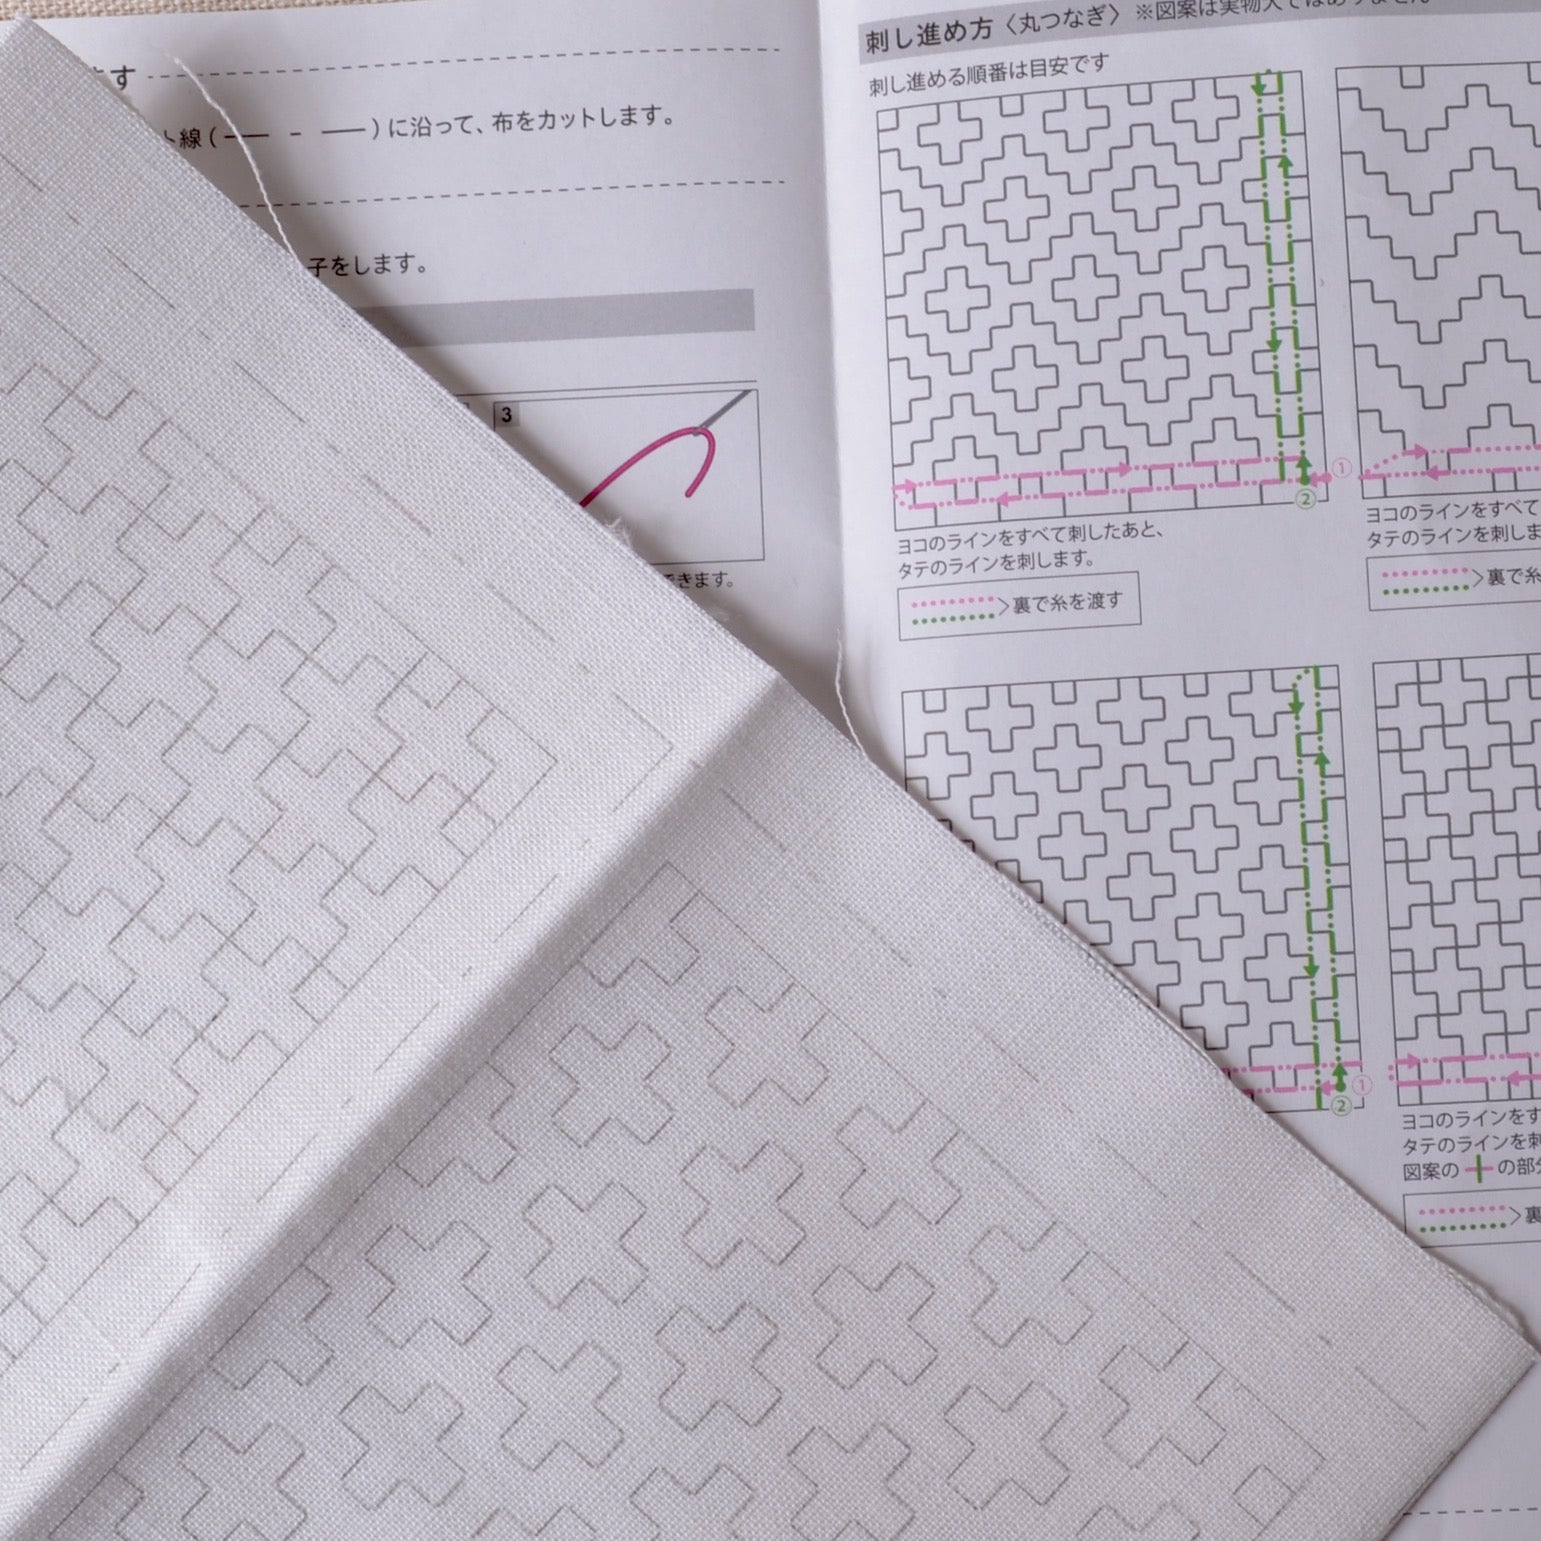 す
ト線(— - —)に沿って、布をカットします。
子をします。
3
きます。
刺し進め方〈丸つなぎ〉※図案は実物大ではありません
刺し進める順番は目安です
①
②
ヨコのラインをすべて刺したあと、
タテのラインを刺します。
裏で糸を渡す
ヨコのラインをすべて
タテのラインを刺しま
裏で糸
①
②
ヨコのラインをす
タテのラインを刺
図案の＋の部分
裏